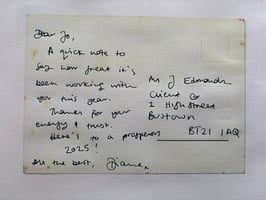 Dear Jo,
A quick note to
say how great it's
been working with
you this year.
Thanks for your
energy & trust.
Here's to a prosperous
2025!
All the best, Diane x
Ms J Edmonds
Client Co
2 High Street
Bustown
BT21 1AQ